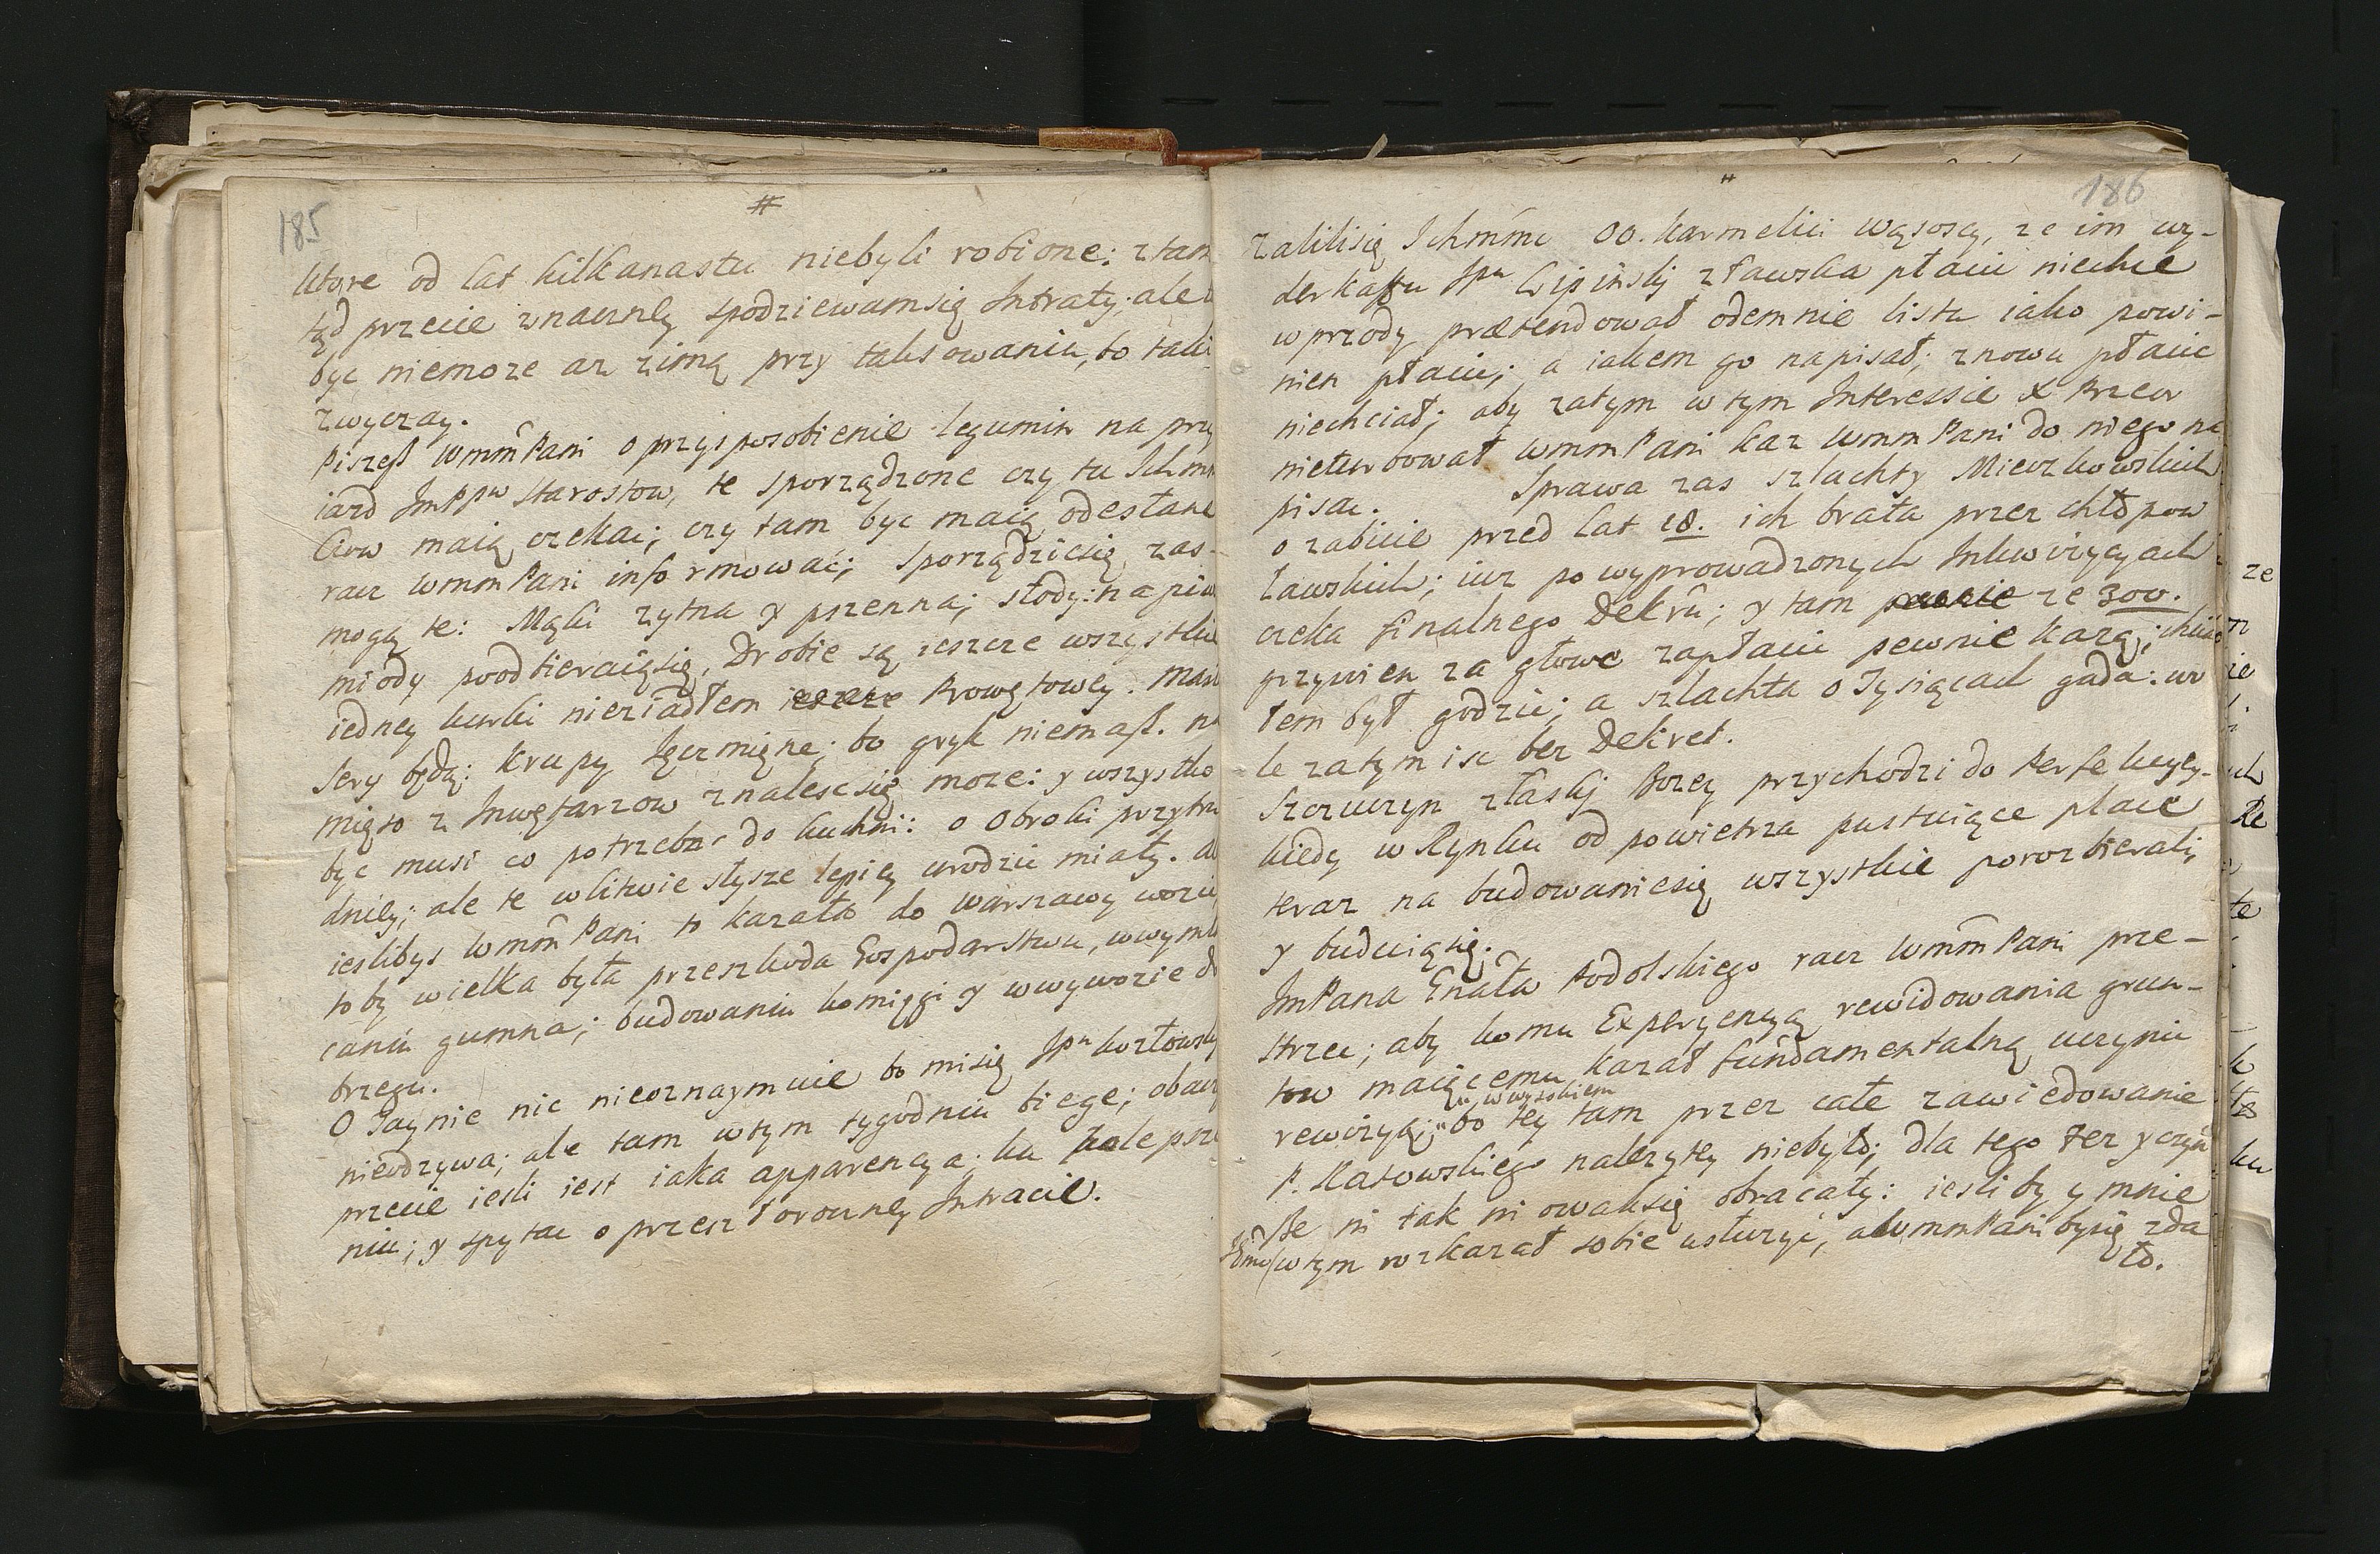 185
#
ktore od lat kilkanastu niebyli robione: ztam
tąd przecie znaczney spodziewamsię Intraty; ale
byc niemoze az zimą przy taksowaniu, bo taki
zwyczay.
Piszesz WmmPani o przysposobienie legumin na przy
iazd ImPPw Starostow, te sporządzone czy tu Ichm
ciow maią czekac; czy tam byc maią odesłane
racz WmmPani informować; sporządzicsię zas
mogą te: Mąki zytna y pszenna; słody: na piw
miody poodbieraiąsię, Drobie są ieszcze wszystkie
iedney kurki nieziadłem Prowętowey. Masł
Sery będą: Krupy Ięczmięne: bo gryk niemasz. 
mięso z Inwętarzow znalescsię moze: y wszystko
byc musi co potrzebne do kuchni: o Obroki przytru
dniey; ale te w Litwie słysze lepiey urodzic miały. 
ieslibys WmmPani to kazała do Warszawy wozic,
toby wielka była przeszkoda Gospodarstwu, wwymło
caniu gumna; budowaniu komięgi y wwywozie d
brzegu.
O Taynie nic nieoznaymuie bo misię JPn Kozłowsky
nieodzywa; ale tam wtym tygodniu biegę; obacz
przecie iesli iest iaka apparencya ku polepsze
niu; y spytac o przeszłoroczney Intracie.
186
#
Zalilisię Ichmmc OO. Karmelici Wąsoscy, ze im wy-
derkaffu JPn Lipinskj zławska płacic niechce
wprzody prætendował odemnie listu iako powi-
nien płacic; a iakem go napisał; znowu płacic
niechciał; aby zatym w tym Interessie X Przeor
nieturbował WmmPani kaz WmmPani do niego na
pisac. Sprawa zas szlachty Mieczkowskich
o zabicie przed lat 18. ich brata przez chłopow
Ławskich; iuz po wyprowadzonych Inkwizycyach
czeka finalnego Dekru; y tam ze 300.
grzywien za głowe zapłacic pewnie każą; chcia
łem był godzic; a szlachta o Tysiącach gada: wo
le zatym isc bez Dekret.
Szczuczyn złaskj Bozey przychodzi do Perfekcyey-
kiedy w Rynku od powietrza pustuiące place
teraz na budowaniesię wszystkie porozbierali,
y buduiąsię.
ImPana Gnata Podolskiego racz WmmPani prze-
strzec; aby komu Experyencyą rewidowania grun-
tow maiącemu kazał fundamentalną uczynic
" w wysokiem
rewizyą; " bo tey tam przez całe zawiedowanie
P. Ratowskiego nalezytey niebyło; dla tego tez y czyn
sze ni tak ni owaksię obracały: iesliby y mnie
wtym rozkazał sobie usłuzyć, aWmmPani bysię zda
ło.